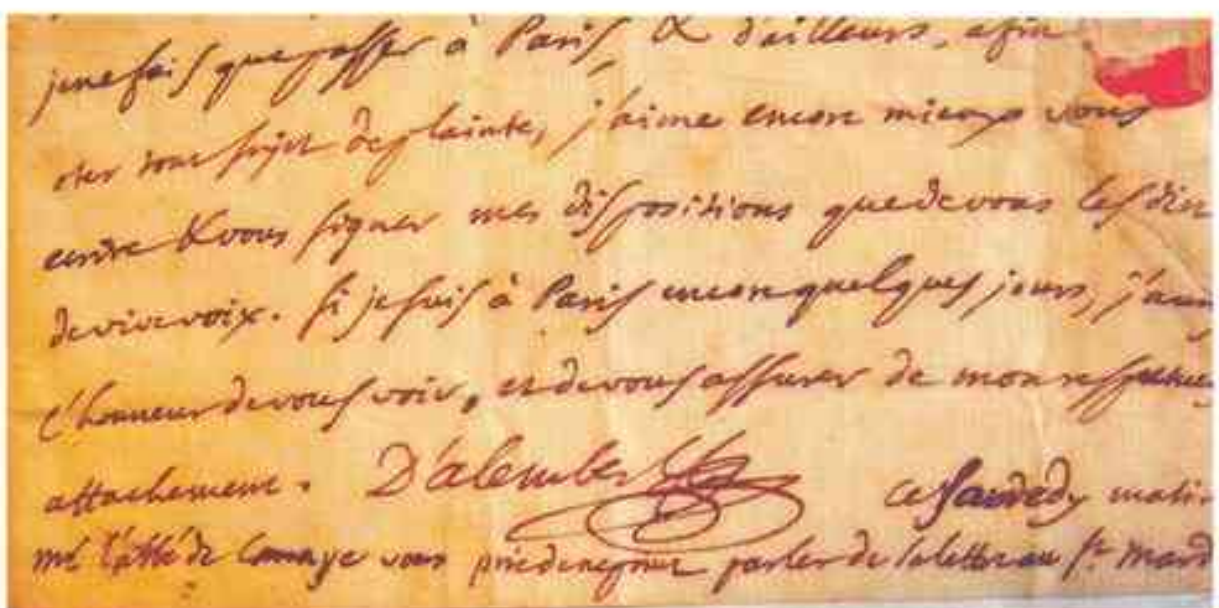 je ne fais que passer à Paris, & d'ailleurs, afin
oter tout sujet de plainte, j'aime encore mieux vous
ecrire & vous signer mes dispositions que de vous les dire
de vive voix. si je suis à Paris encore quelques jours, j'aurai
l'honneur de vous voir, et de vous assurer de mon respectueux
attachement. D'alembert ce samedy matin
mr l'abbé de vous prie de ne point parler de la lettre au Sr.